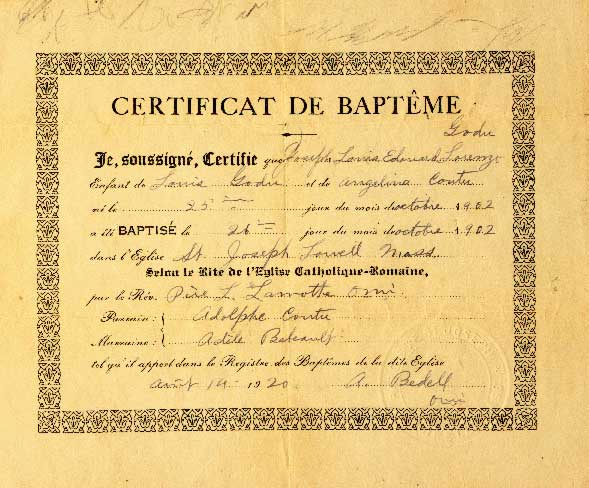 CERTIFICAT DE BAPTÊME
Godu
Je, soussigné, Certifie que Joseph Louis Edouard Lorenzo
Enfant de Louis Godu et de Angelina Coutu
né le 25 ième jour du mois de octobre 1902
a été BAPTISÉ le 26 ième jour du mois de octobre 1902
dans l'Eglise St. Joseph Lowell Mass
Selon le Rite de l'Eglise Catholique-Romaine,
par le Rév. Père L. Lamothe omi
Parrain: Adolphe Coutu
Marraine: Adèle
tel qu'il appert dans le Registre des Baptêmes de la dite Eglise
août 14 1920 A. Bedell
omi